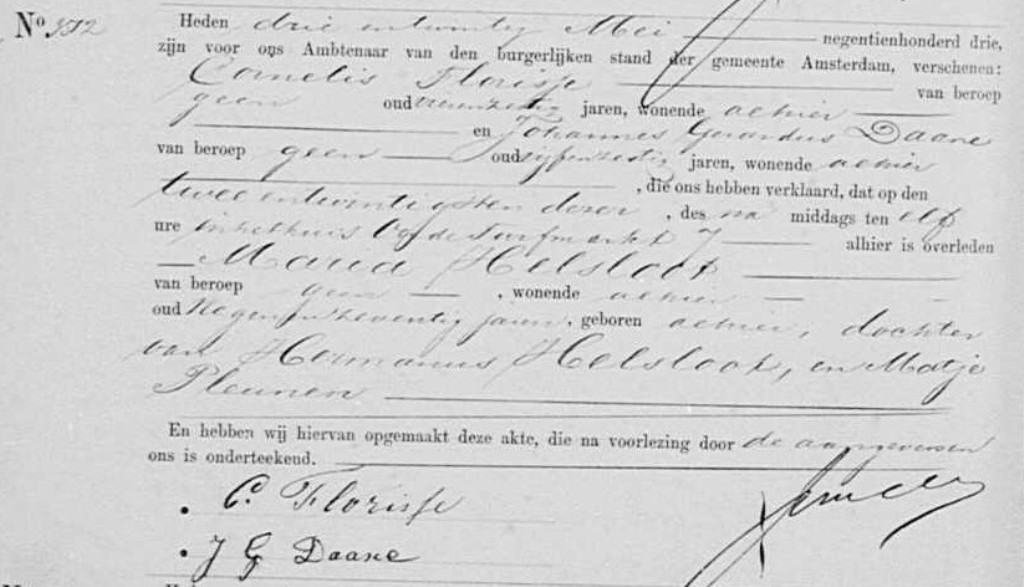 No 512
Heden drie en twintig Mei negentienhonderd drie,
zijn voor ons Ambtenaar van den burgerlijken stand der gemeente Amsterdam, verschenen:
Cornelis Florisse van beroep
geen oud jaren, wonende alhier
en Johannes Gerardus Daane
van beroep geen oud vijfenzestig jaren, wonende alhier
, die ons hebben verklaard, dat op den
twee entwintigsten dezer , des na middags ten elf
ure in het huis Turfmarkt 7 alhier is overleden
Maria Helsloot
van beroep geen , wonende alhier
oud Negenenzeventig jaren, geboren alhier, dochter
van Hermanus Helsloot, en Matje
Pleunen
En hebben wij hiervan opgemaakt deze akte, die na voorlezing door de aangevers en
ons is onderteekend.
C. Florisse
J G Daane